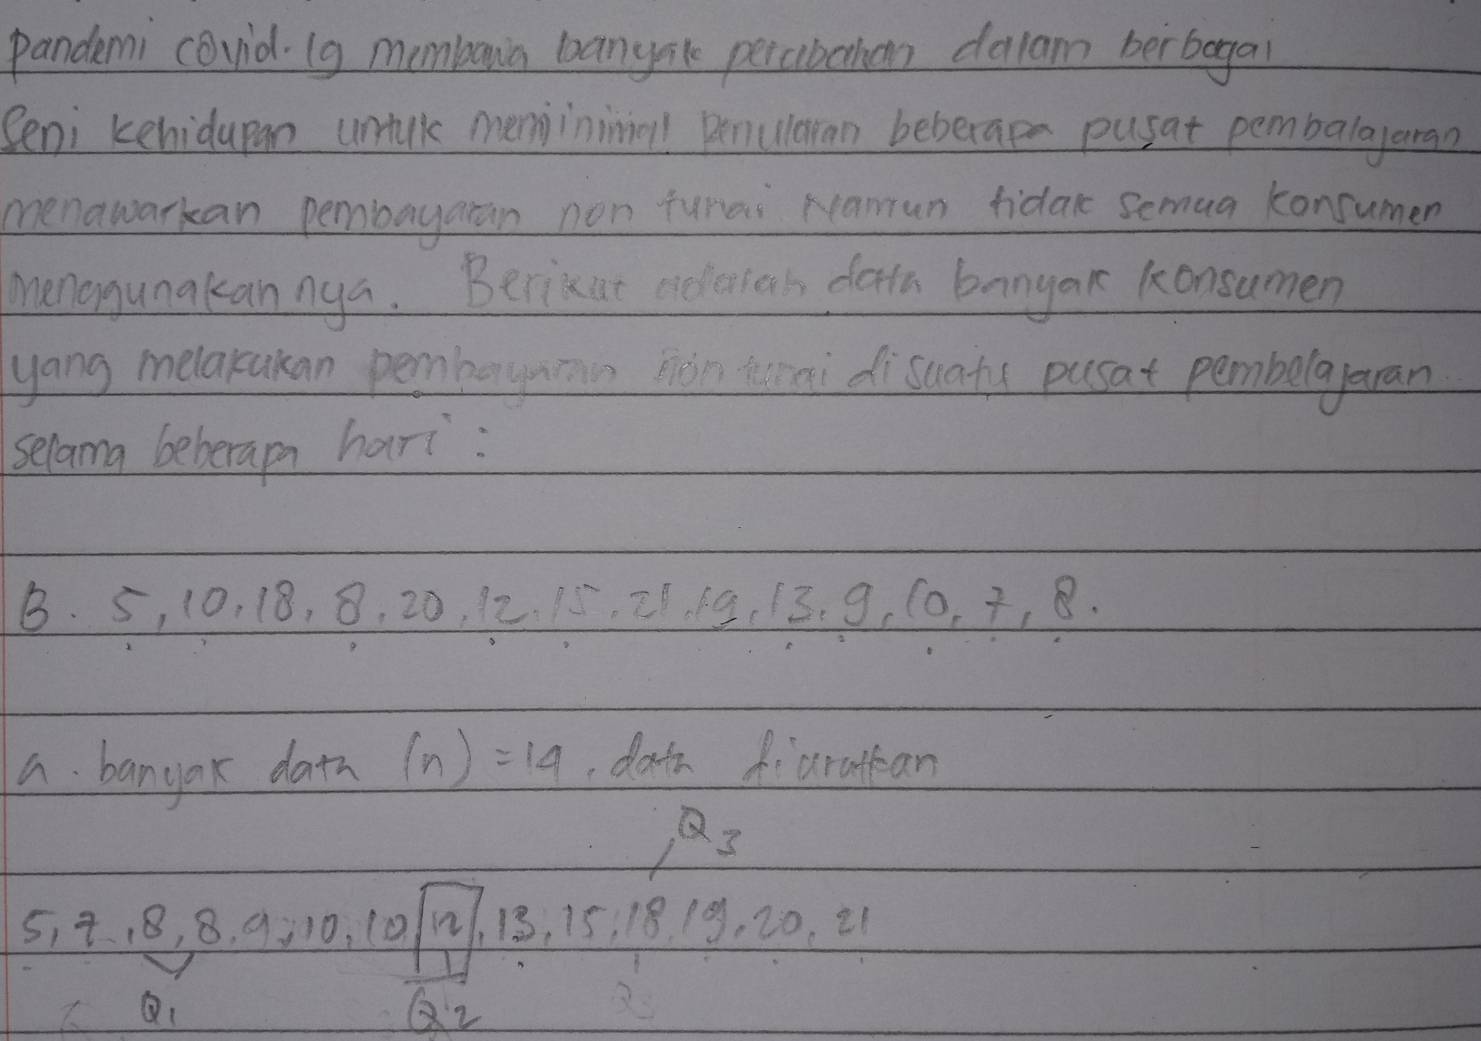 pandemi covid. 19 membawa banyak perubahan dalam berbagai
Seni kehidupan untuk meminimal penularan beberapa pusat pembalajaran
menawarkan pembayaran non tunai Namun tidak semua konsumen
menggunakan nya. Berikut adalah data banyak konsumen
yang melakukan pembayaran non tunai di suatu pusat pembelajaran
selama beberapa hari :
B. 5, 10, 18, 8, 20, 12, 15, 21, 19, 13, 9, 10, 7, 8.
a. banyak data (n) = 14, data diurutkan
Q3
5, 7, 8, 8, 9, 10, 10, 12, 13, 15, 18, 19, 20, 21
Q1 Q2